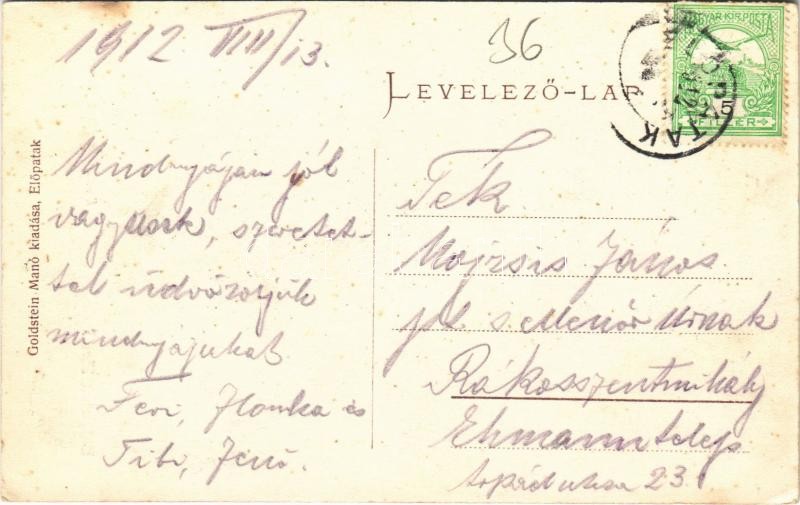 1912 VIII/13.
36
LEVELEZŐ-LAP
MAGYAR KIR. POSTA
5
FILLÉR
ELŐPATAK
Goldstein Manó kiadása, Előpatak
Mindnyájan jól
vagyunk, szeretet-
tel üdvözöljük
mindnyájukat
Feri, Ilonka és
Tibi, Jenő.
Tek
Mojzsis János
ellenőr Urnak
Rákosszentmihály
Ehmanntelep
Árpád utca 23